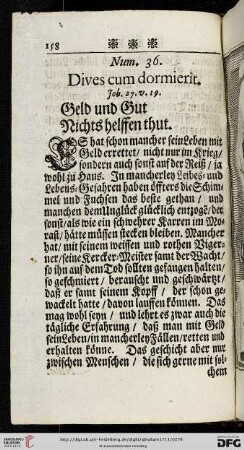 158 * * *
Num. 36.
Dives cum dormierit.
Job. 27. v. 19.
Geld und Gut
Nichts helffen thut.
ES hat schon mancher sein Leben mit
Geld errettet / nicht nur im Krieg /
sondern auch sonst auf der Reiß / ja
wohl zu Haus. In mancherley Leibes- und
Lebens-Gefahren haben öffters die Schim-
mel und Fuchsen das beste gethan / und
manchen dem Unglück glücklich entzogē / der
sonst / als wie ein schwehrer Karren im Mo-
rast / hätte müssen stecken bleiben. Mancher
hat / mit seinem weissen und rothen
ner / seine Kercker-Meister samt der Wacht /
so ihn auf dem Tod sollten gefangen halten /
so geschmiert / berauscht und geschwärtzt /
daß er samt seinem Kopff / der schon ge-
wackelt hatte / davon lauffen können. Das
mag wohl seyn / und lehrt es zwar auch die
tägliche Erfahrung / daß man mit Geld
sein Leben / in mancherley Fällen / retten und
erhalten könne. Das geschicht aber nur
zwischen Menschen / die sich gerne mit sol-
chem
http://digi.ub.uni-heidelberg.de/diglit/abraham1711/0276
UNIVERSITÄTS-
BIBLIOTHEK
HEIDELBERG
gefördert durch die
DFG